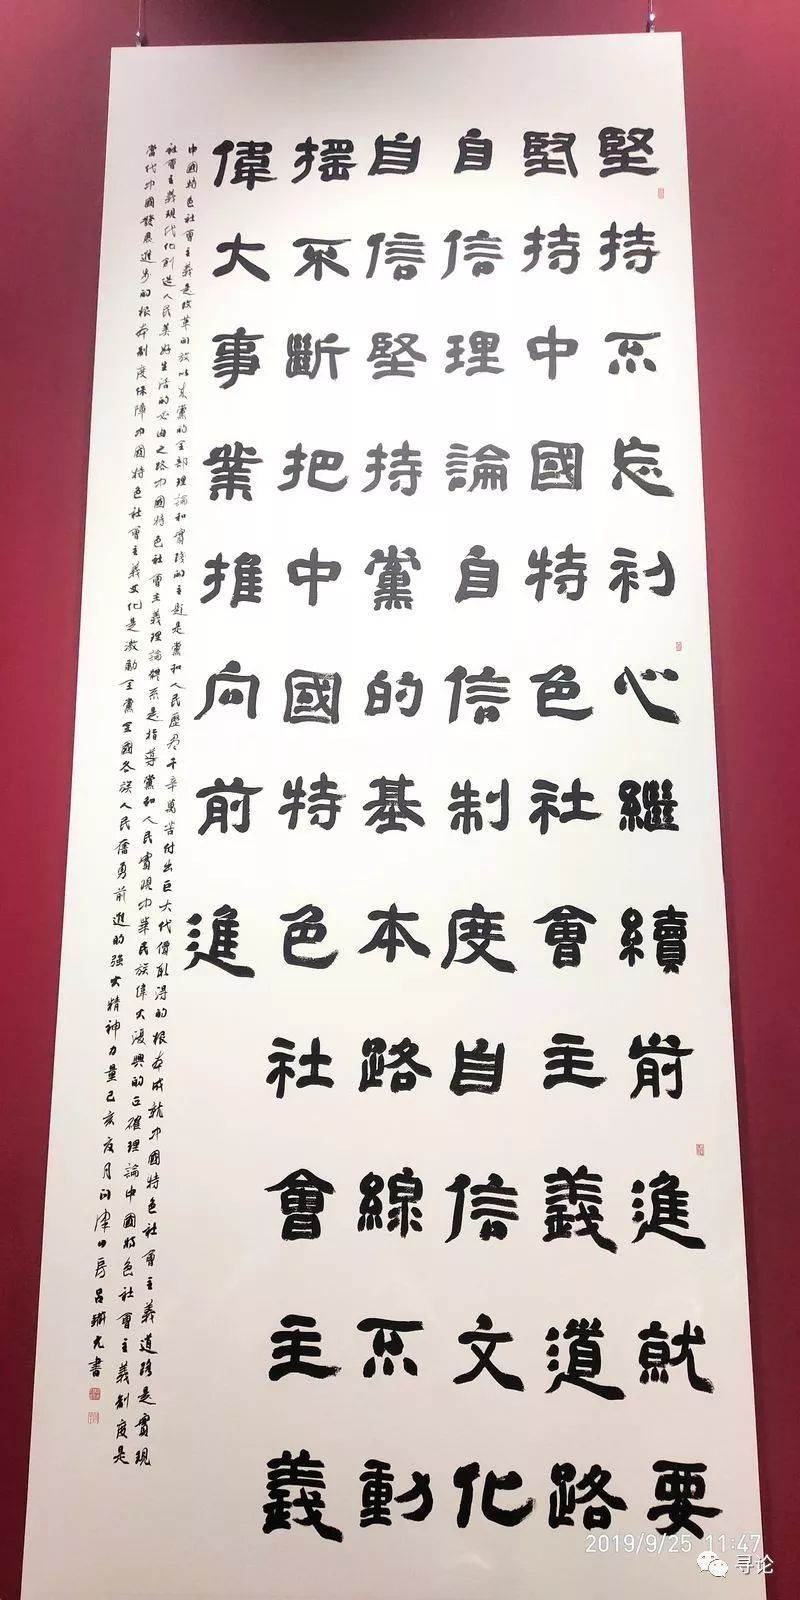 堅持不忘初心繼續前進就要
堅持中國特色社會主義道路
自信理論自信制度自信文化
自信堅持黨的基本路線不動
摇不斷把中國特色社會主義
偉大事業推向前進
中國特色社會主義是改革開放以來黨的全部理論和實踐的主題是黨和人民歷盡千辛萬苦付出巨大代價取得的根本成就中國特色社會主義道路是實現
社會主義現代化創造人民美好生活的必由之路中國特色社會主義理論體系是指導黨和人民實現中華民族偉大復興的正確理論中國特色社會主義制度是
當代中國發展進步的根本制度保障中國特色社會主義文化是激勵全黨全國各族人民奮勇前進的強大精神力量己亥夏月 呂 書
2019/9/25 11:47
寻论